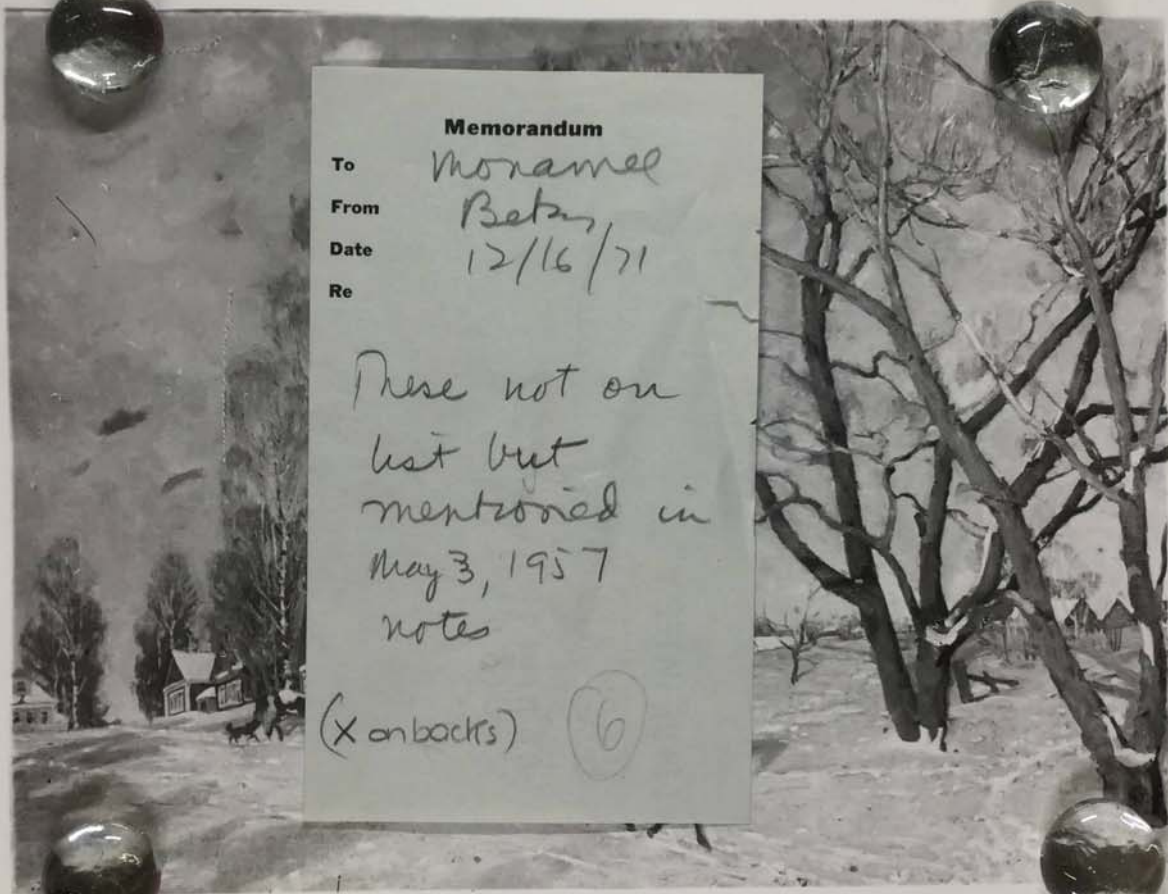 Memorandum
To Monamee
From Betsy
Date 12/16/71
Re
These not on
list but
mentioned in
May 3, 1957
notes
(X on backs) 6